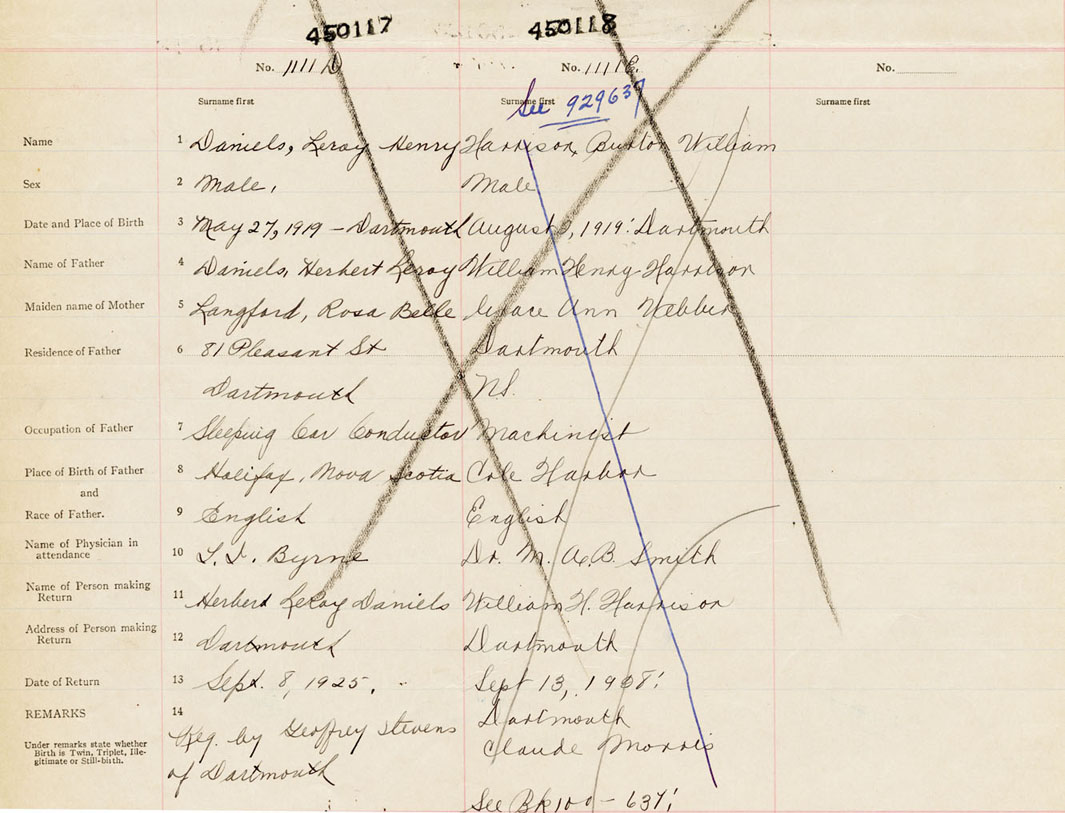 450117 450118
No. 1111 D No. 1111 E. No.
Surname first Surname first Surname first
See 929637
Name 1 Daniels, Leroy Henry Harrison, Burton William
Sex 2 Male, Male
Date and Place of Birth 3 May 27, 1919 - Dartmouth August , 1919: Dartmouth
Name of Father 4 Daniels, Herbert Leroy William Henry Harrison
Maiden name of Mother 5 Langford, Rosa Belle Grace Ann Webber
Residence of Father 6 81 Pleasant St Dartmouth
Dartmouth NS.
Occupation of Father 7 Sleeping Car Conductor Machinist
Place of Birth of Father 8 Halifax, Nova Scotia Cole Harbor
and
Race of Father. 9 English English
Name of Physician in attendance 10 Byrne Dr. M. A. B. Smith
Name of Person making Return 11 Herbert LeRoy Daniels William H. Harrison
Address of Person making Return 12 Dartmouth Dartmouth
Date of Return 13 Sept. 8, 1925. Sept 13,
REMARKS 14 Dartmouth
Reg. by Geoffrey Stevens Claude Morris
Under remarks state whether
Birth is Twin, Triplet, Ille-
gitimate or Still-birth.
of Dartmouth
See Bk 100 - 637